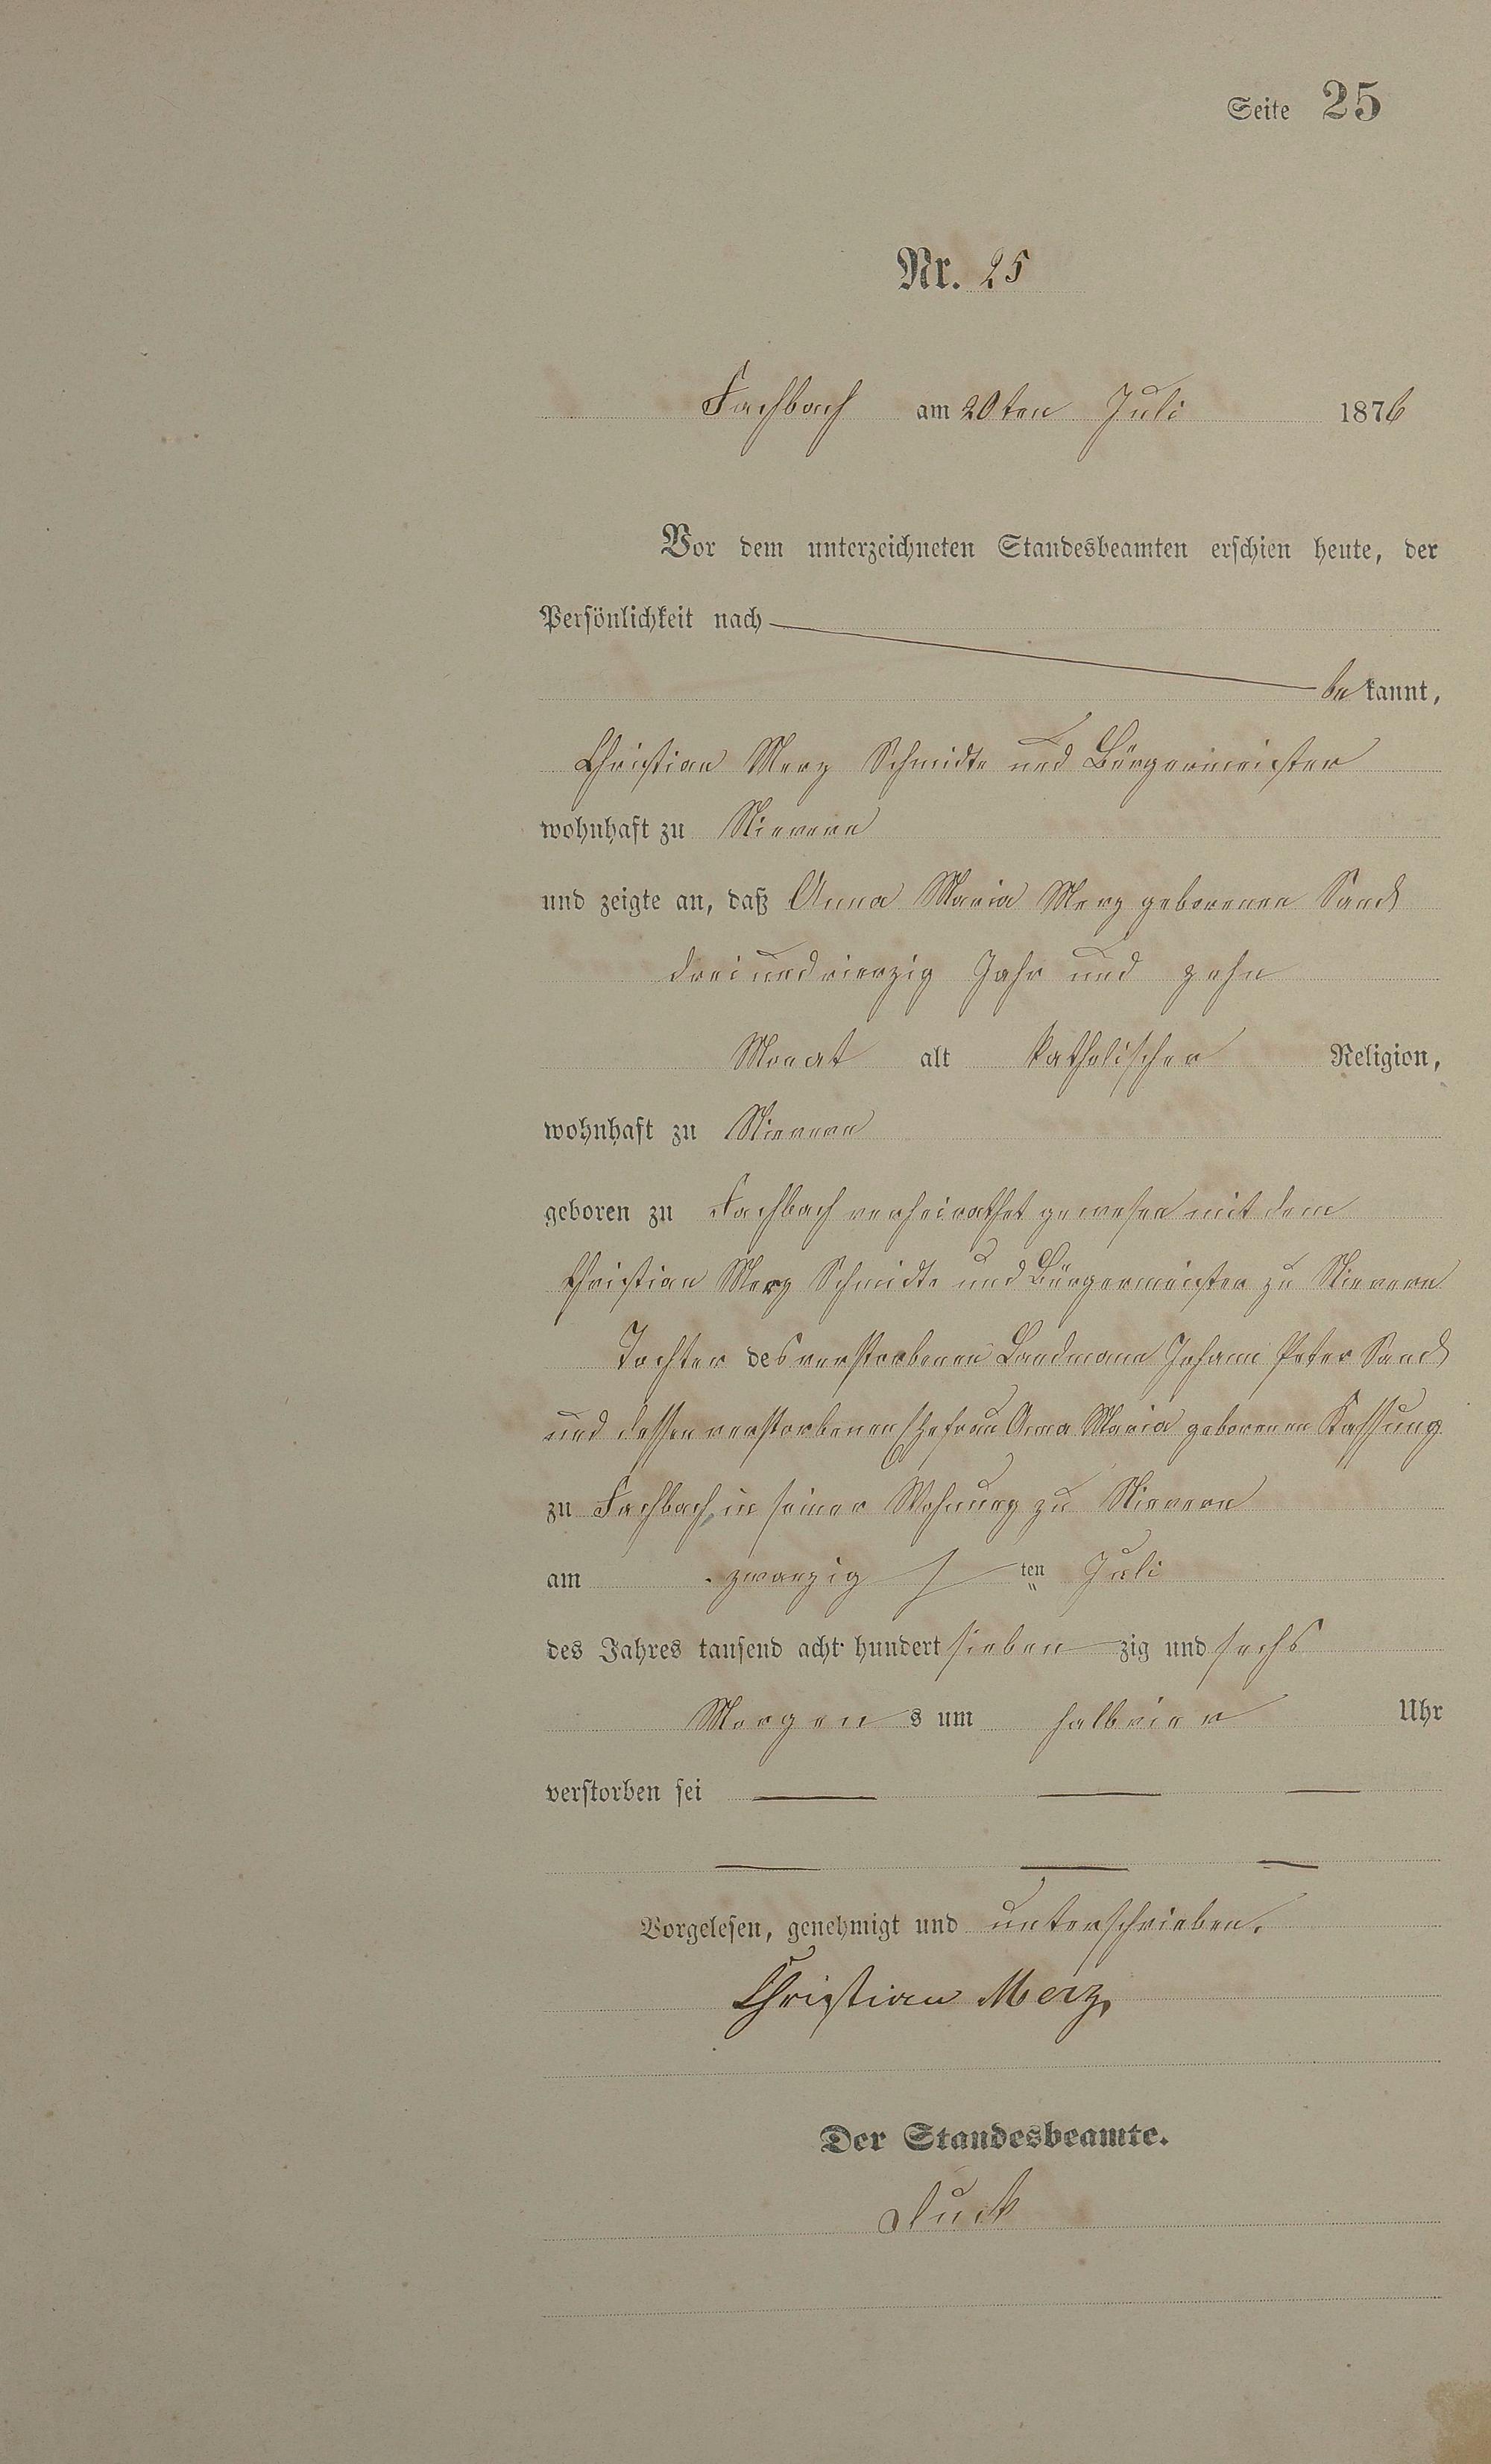 Seite 25
Nr. 25
Fachbach am 20ten Juli 1876
Vor dem unterzeichneten Standesbeamten erschien heute, der
Persönlichkeit nach
bekannt,
Christian Merz Schmidte und Bürgermeister
wohnhaft zu Nievern
und zeigte an, daß Anna Maria Merz geborenen Sand
dreiundvierzig Jahr und zehn
Monat alt katholischer Religion,
wohnhaft zu Nievern
geboren zu Fachbach verheirathet gewesen mit dem
Christian Merz Schmidte und Bürgermeister zu Nievern
Tochter des verstorbenen Landmann Johann Peter Sand
und dessen verstorbenen Ehefrau Anna Maria geborenen
zu Fachbach, in seiner Wohnung zu Nievern
am zwanzigsten Juli
des Jahres tausend acht hundert siebenzig und sechs
Morgens um halbvier Uhr
verstorben sei
Vorgelesen, genehmigt und unterschrieben.
Christian Merz
Der Standesbeamte.